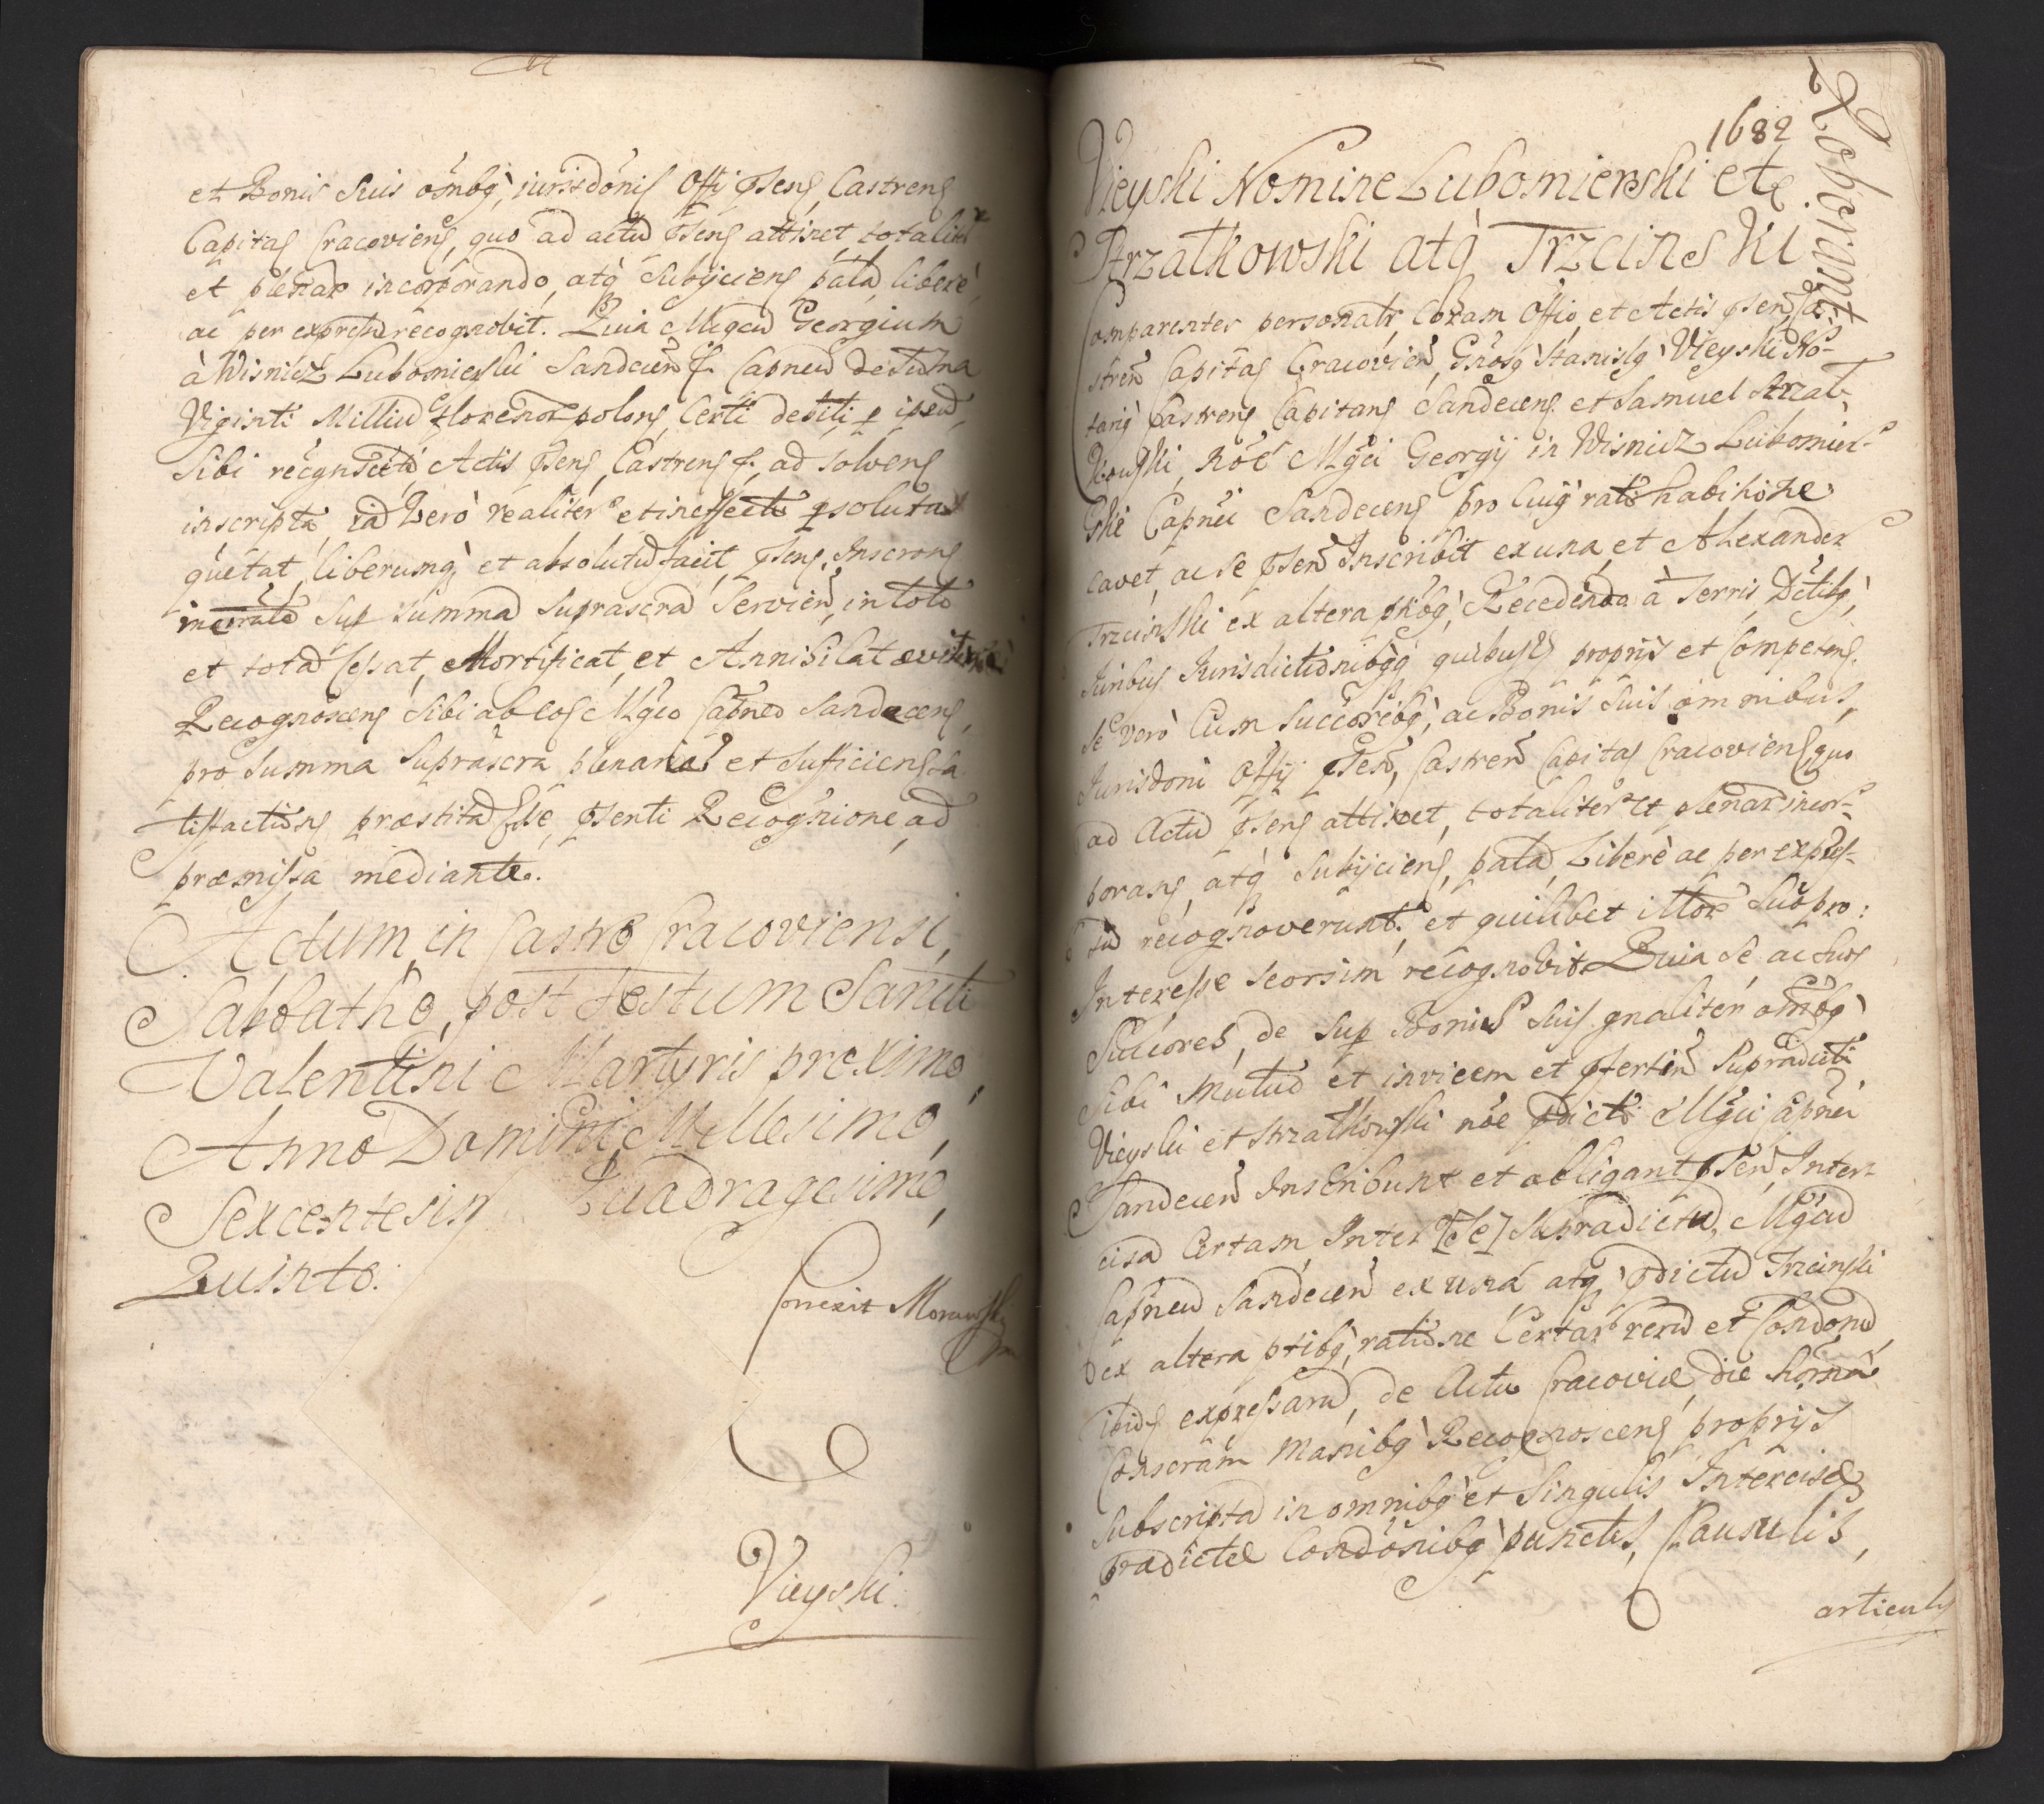 et Bonis Suis oмnibq, iurisdónis Offy Psens, Castrens
Capitas Cracoviens, quo ad actū Psens attinet totaliter
et plenar incorporando, atq Subyciens palā, libere,
ac per expressū recognovit. Quia Mgcū Georgium
à Wisnicz Lubomierski Sandecen f. Capneū de Suma
Viginti Milliū Florenor polons, Certi debiti p ipsū,
Sibi recgnsciti, Actis Psens, Castrens f. ad solvens
inscripta, iā Verò realiter et in effectu psoluta
quetat, liberumq, et absolutū facit, Psens, Inscrons
sup Summa Suprascra Servien, in toto
et totā Cessat, Mortificat, et Annihilat
Recognoscens Sibi ab eos Mgco Capneo Sandecens,
pro Summa Suprascra plenariā et Sufficiens sa
tisfactiōns præstitā Esse, Psenti Recognione, ad
præmissa mediante.
Actum, in Castro Cracoviensi,
Sabbatho, post Festum Sancti
Valentini Martyris proximo,
Anno Domini Millesimo,
Sexcentesim Quadragesimo,
Quinto.
Correxit Morawski
Vieyski.
1682
Roborant
Vieyski Nomine Lubomierski et
Strzalkowski atq Trzcinski
Comparentes personalr Coram Offio, et Actis Psen, Ca-
stren Capitas Cracovien, Gnosq Stanislq Vieyski No-
tariq Castrens Capitans Sandecens et Samuel Strzal-
kowski, Nóe Mgci Georgy in Wisnicz Lubomier-
ski Capnei Sandecens pro Cuiq rati habitione
cavet, ac se Psen Inscribit ex una, et Alexander
Trzcinski ex altera ptibq, Recedendo à Terris, Dctibq,
Iuribus Iurisdictionibqq quibusvs proprijs et Competens.
Se verò Cum Succoribq, ac Bonis Suis omnibus,
Iurisdoni Offy Psen, Castren Capitas Cracoviens, quo
ad Actū Psens attinet, totaliter et plenar incor-
porans, atq Subyciens, palā, Libere ac per expres-
sū recognoverunt, et quilibet illor Suo pro:
Interesse seorsim recognovit. Quia Se ac Suos
Sucores, de Sup Bonis Suis gnaliter omibq
Sibi Mutuo et invicem et Psertin Supradicti
Vieyski et Strzalkowski nóe pdicti Mgci Capnei
Sandecen Inscribunt et obligant Psen, Inter-
cisā Certam Inter [Se] Supradictū, Mgcū
Capneū Sandecen ex unâ atq, pdictū Trzcinski
ex altera ptibq, ratione Certar rerū et Condonū
ibids expressarū, de Actu Cracoviæ, die hornâ
Conscram Manibq Recognoscens proprijs
Subscriptā in omnibq et Singulis Intercisæ
Pradictæ Condonibq punctis, Clausulis,
articulis